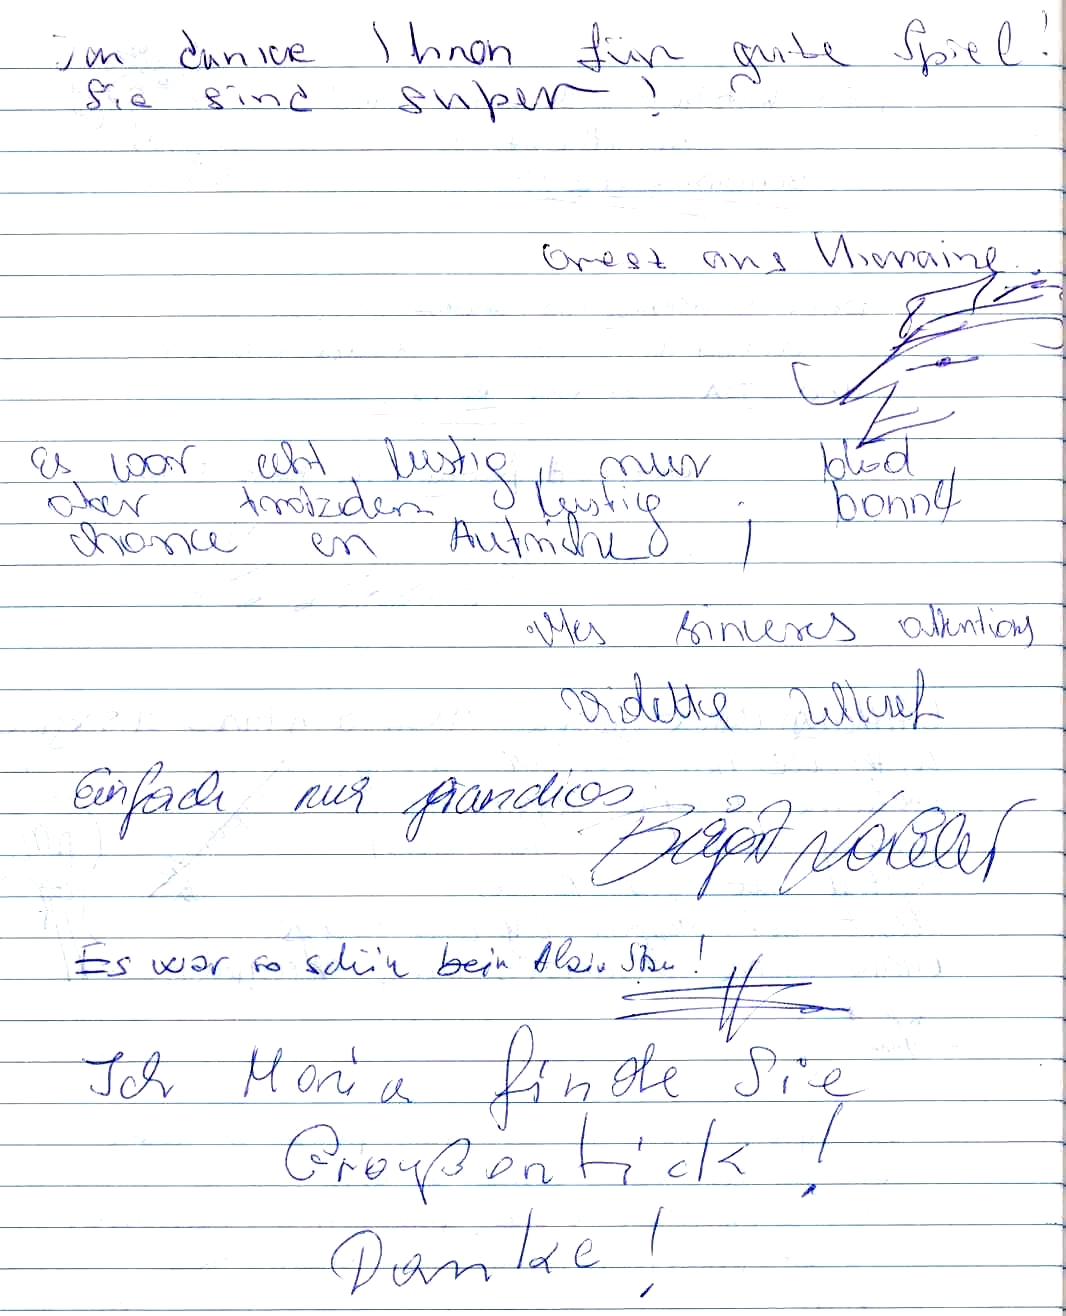 ich danke Ihnen für gute Spiel!
Sie sind super!
Orest aus Ukraine
Es war echt lustig, nur blöd,
aber trotzdem lustig; bonne
chance en Autriche!
Mes sinceres attentions
Einfach nur grandios
Birgit
Es war so schön bein Alain Show!
Ich Maria finde Sie
Großentick!
Danke!